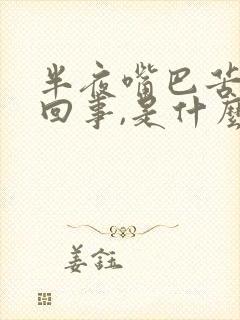 半夜嘴巴苦
回事,是什麼
姜鈺